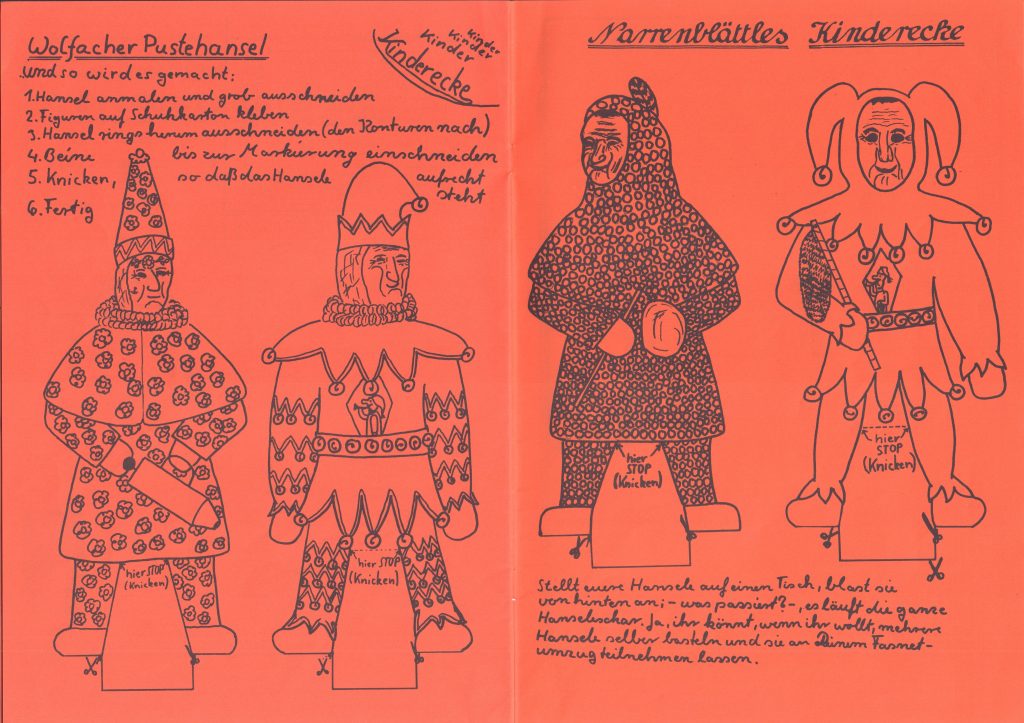 Wolfacher Pustehansel
Kinder
Kinder
Kinder
Kinderecke
Und so wird es gemacht:
1. Hansel anmalen und grob ausschneiden
2. Figuren auf Schuhkarton kleben
3. Hansel rings herum ausschneiden (den Konturen nach)
4. Beine bis zur Markierung einschneiden
5. Knicken, so daß das Hansele aufrecht
steht
6. Fertig
hier STOP
(Knicken)
hier STOP
(Knicken)
Narrenblättles Kinderecke
hier
STOP
(Knicken)
hier
STOP
(Knicken)
Stellt eure Hansele auf einen Tisch, blast sie
von hinten an; - was passiert? -, es läuft die ganze
Hanselschar. Ja, ihr könnt, wenn ihr wollt, mehrere
Hansele selber basteln und sie an Deinem Fasnet-
umzug teilnehmen lassen.